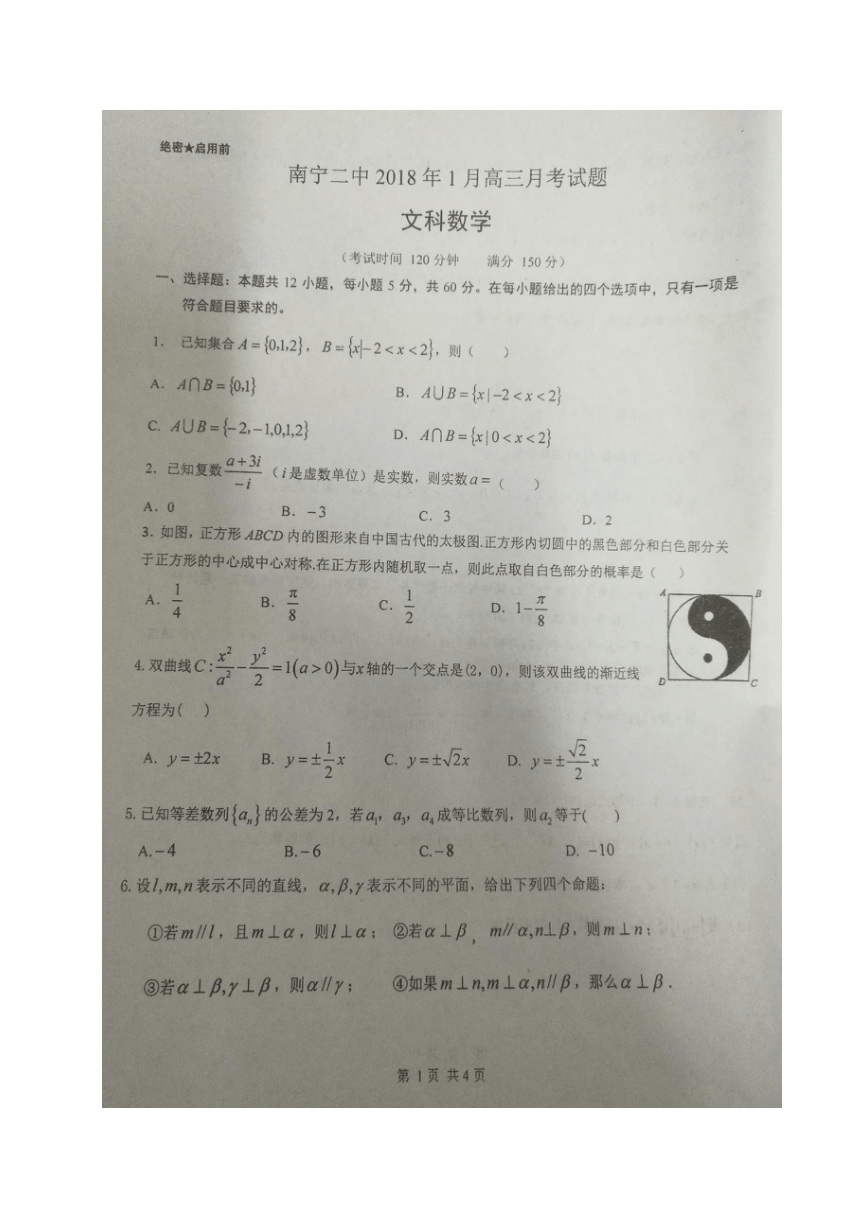 绝密★启用前
南宁二中 2018 年 1 月高三月考试题
文科数学
(考试时间 120 分钟 满分 150 分)
一、选择题：本题共 12 小题，每小题 5 分，共 60 分。在每小题给出的四个选项中，只有一项是
符合题目要求的。
1. 已知集合 A={0,1,2}，B={x|-2<x<2}，则( )
A. A∩B={0,1} B. A∪B={x|-2<x<2}
C. A∪B={-2,-1,0,1,2} D. A∩B={x|0<x<2}
2. 已知复数 (a+3i)/(-i) (i是虚数单位) 是实数，则实数a=( )
A. 0 B. -3 C. 3 D. 2
3. 如图，正方形 ABCD 内的图形来自中国古代的太极图.正方形内切圆中的黑色部分和白色部分关
于正方形的中心成中心对称.在正方形内随机取一点，则此点取自白色部分的概率是( )
A. 1/4 B. π/8 C. 1/2 D. 1-π/8
A B
D C
4. 双曲线C: x²/a² - y²/2 = 1(a>0)与x轴的一个交点是(2，0)，则该双曲线的渐近线
方程为( )
A. y=±2x B. y=±1/2 x C. y=±√2x D. y=±√2/2 x
5. 已知等差数列{aₙ}的公差为 2，若a₁，a₃，a₄成等比数列，则a₂等于( )
A.-4 B.-6 C.-8 D. -10
6. 设l,m,n表示不同的直线，α,β,γ表示不同的平面，给出下列四个命题：
①若m//l，且m⊥α，则l⊥α； ②若α⊥β，m//α,n⊥β，则m⊥n；
③若α⊥β,γ⊥β，则α//γ； ④如果m⊥n,m⊥α,n//β，那么α⊥β.
第 1页 共4页